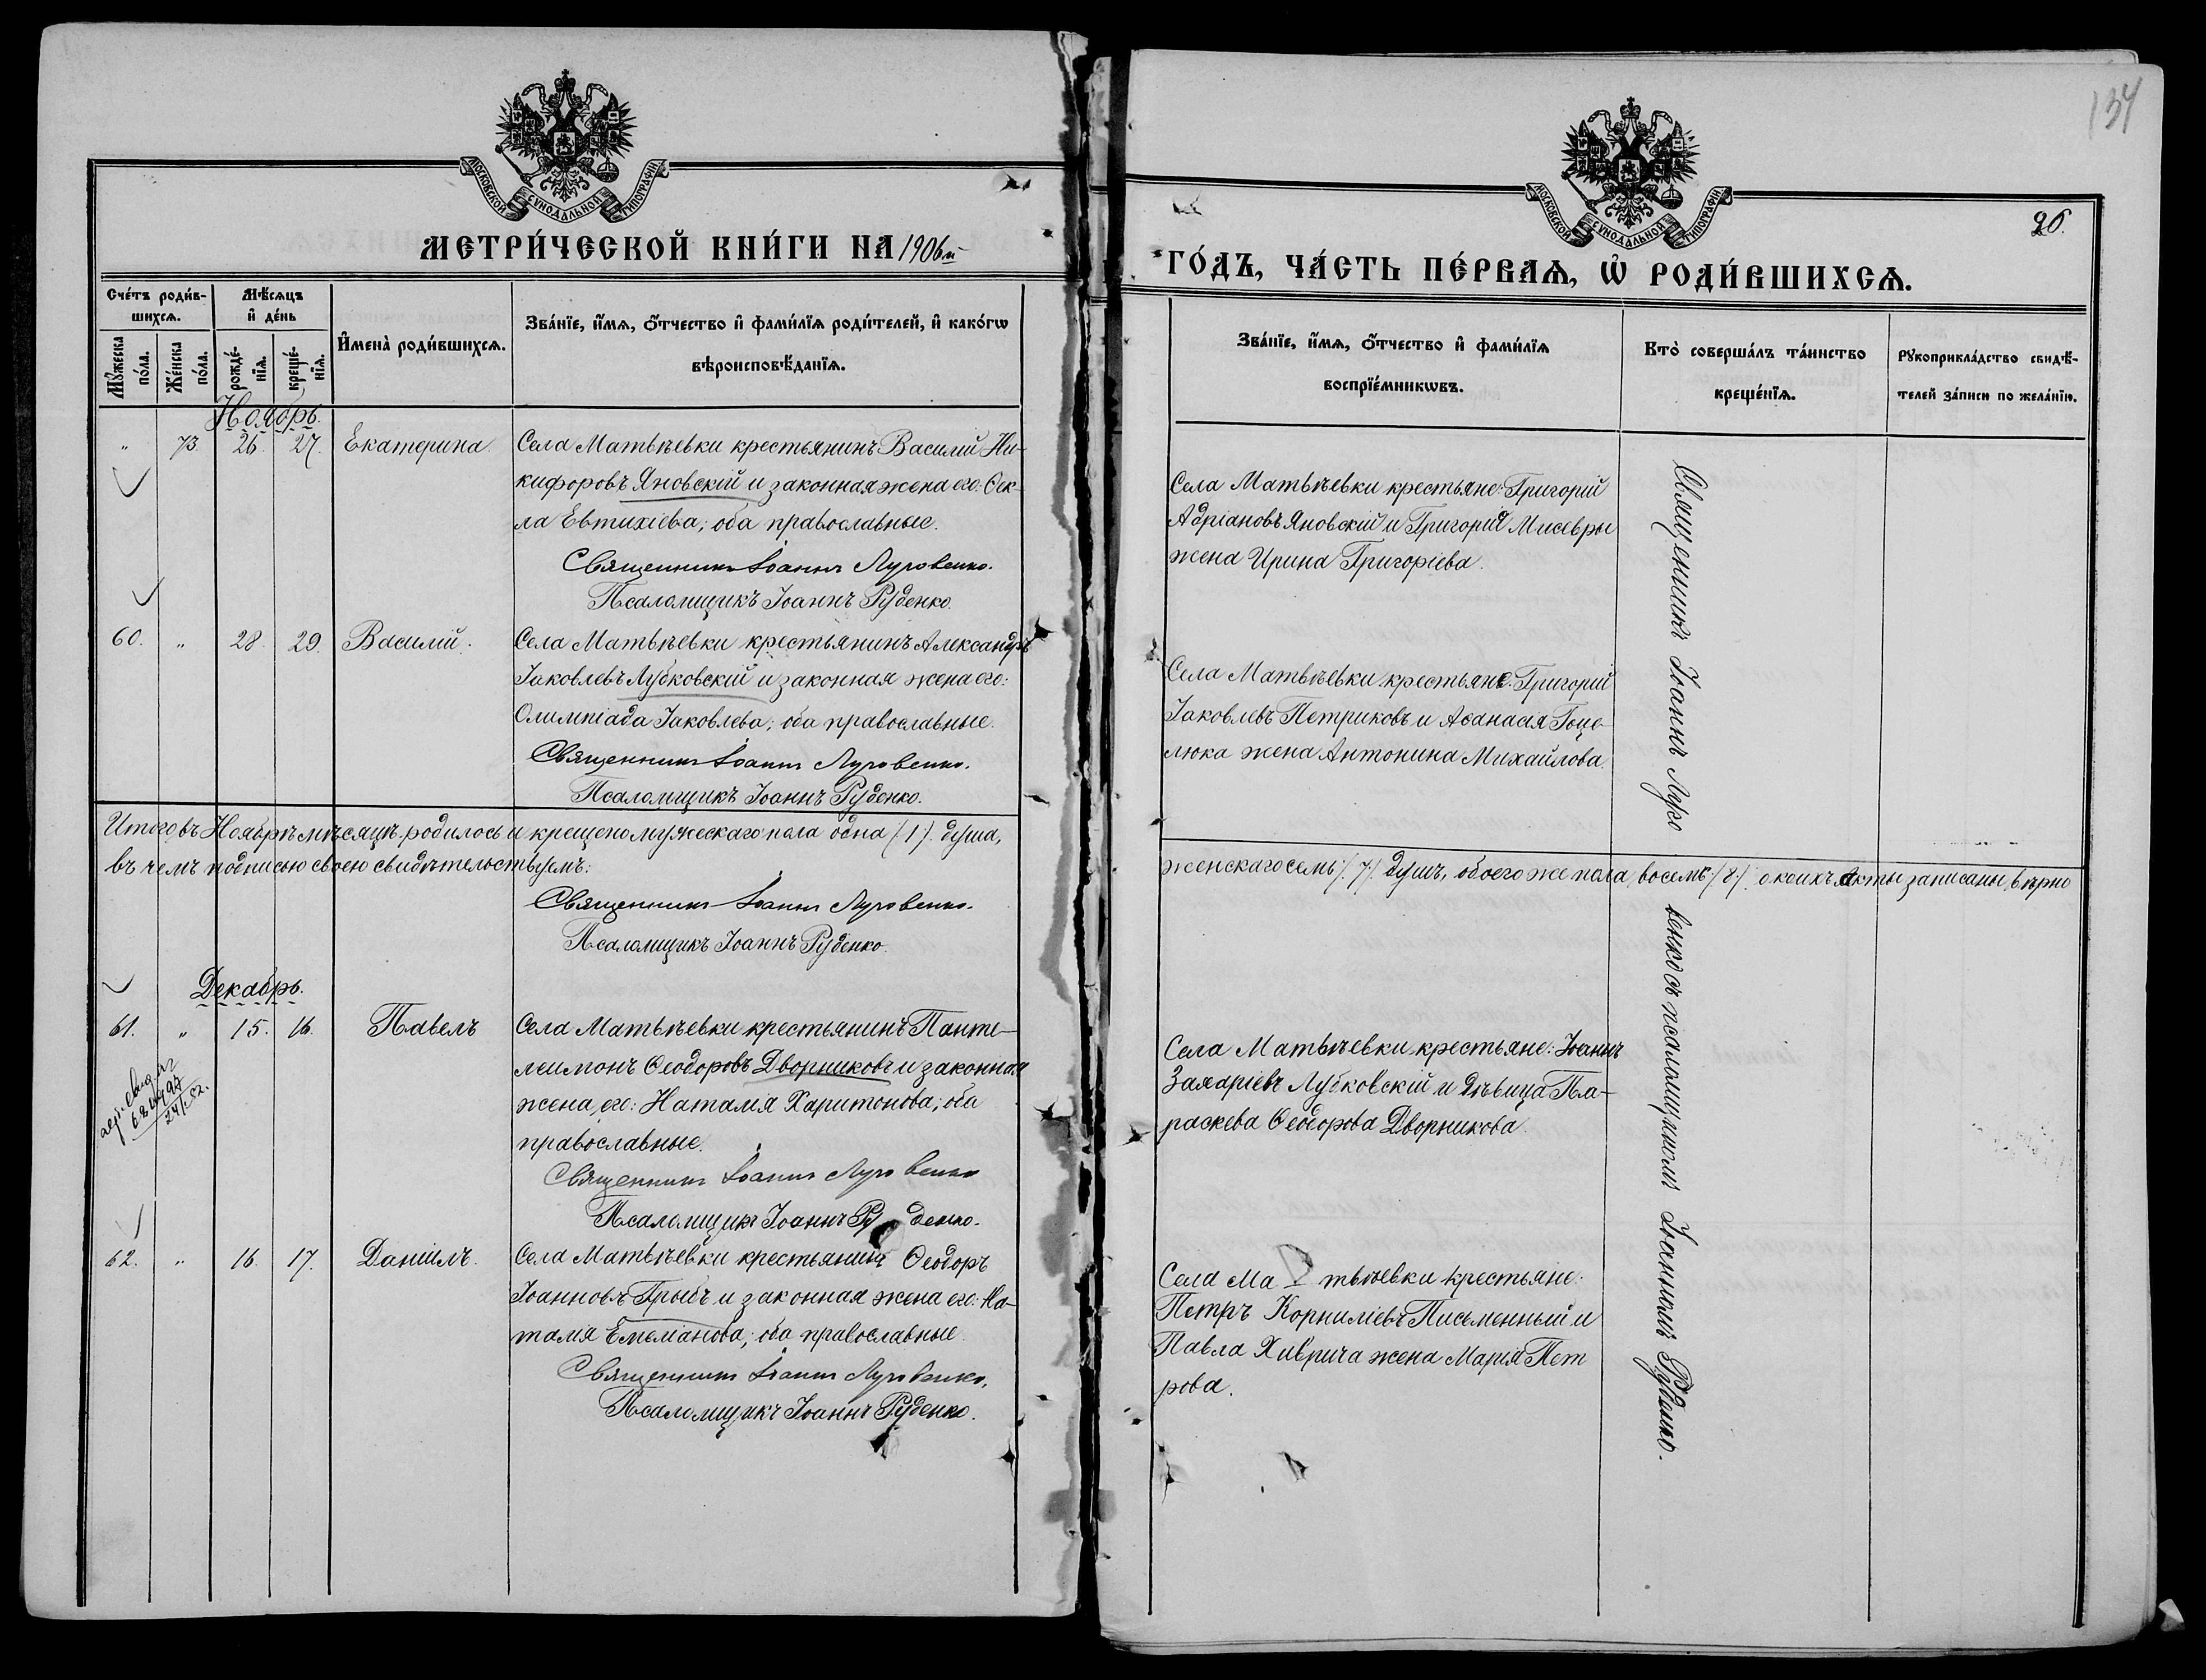 134
МОСКОВСКОЙ СѴНОДАЛЬНОЙ ТИПОГРАФІИ
МОСКОВСКОЙ СѴНОДАЛЬНОЙ ТИПОГРАФІИ
26.
МЕТРИ́ЧЕСКОЙ КНИ́ГИ НА 1906й
ГО́ДЪ, ЧА́СТЬ ПЕ́РВАѦ, Ѡ РОДИ́ВШИХСѦ.
Счéтъ роди́в-
шихсѧ.
Мꙋ́жеска
по́ла.
Же́нска
по́ла.
Мѣ́сѧцъ
и҆ де́нь
рожде́-
нїѧ.
креще́-
нїѧ.
И҆мена̀ роди́вшихсѧ.
Зва́нїе, и҆́мѧ, ѻ҆́тчество и҆ фами́лїѧ роди́телей, и҆ како́гѡ
вѣроисповѣ́данїѧ.
Зва́нїе, и҆́мѧ, ѻ҆́тчество и҆ фами́лїѧ
воспрїе́мникѡвъ.
Кто̀ соверша́лъ та́инство
креще́нїѧ.
Рꙋкоприкла́дство свидѣ́-
телей за́писи по жела́нїю.
Ноябрь.
" 73. 26. 27. Екатерина. Села Матвѣевки крестьянинъ Василій Ни-
кифоровъ Яновскій и законная жена его: Ѳек-
ла Евтихіева; оба православные.
Священникъ Іоаннъ Луговенко.
Псаломщикъ Іоаннъ Руденко.
Села Матвѣевки крестьяне: Григорій
Адріановъ Яновскій и Григорія Мисевры
жена Ирина Григоріева.
60. " 28. 29. Василій. Села Матвѣевки крестьянинъ Александръ
Іаковлевъ Лубковскій и законная жена его:
Олимпіада Іаковлева; оба православные.
Священникъ Іоаннъ Луговенко.
Псаломщикъ Іоаннъ Руденко.
Села Матвѣевки крестьяне: Григорій
Іаковлевъ Петриковъ и Аѳанасія Гоце-
люка жена Антонина Михайлова.
Итого въ Ноябрѣ мѣсяцѣ родилось и крещено мужескаго пола одна (1) душа,
женскаго семь (7) душъ, обоего же пола восемь (8) о коихъ акты записаны вѣрно
въ чемъ подписью своею свидѣтельствуемъ:
Священникъ Іоаннъ Луговенко.
Псаломщикъ Іоаннъ Руденко.
Декабрь.
61. " 15. 16. Павелъ Села Матвѣевки крестьянинъ Панте-
леимонъ Ѳеодоровъ Дворниковъ и законная
жена его: Наталія Харитонова; оба
православные.
Священникъ Іоаннъ Луговенко
Псаломщикъ Іоаннъ Руденко.
Села Матвѣевки крестьяне: Іоаннъ
Захаріевъ Лубковскій и дѣвица Па-
раскева Ѳеодорова Дворникова.
62. " 16. 17. Даніилъ. Села Матвѣевки крестьянинъ Ѳеодоръ
Іоанновъ Грыбъ и законная жена его: На-
талія Емеліанова; оба православные.
Священникъ Іоаннъ Луговенко.
Псаломщикъ Іоаннъ Руденко.
Села Матвѣевки крестьяне:
Петръ Корниліевъ Письменный и
Павла Хиврича жена Марія Пет
рова.
Священникъ Іоаннъ Луговенко съ псаломщикомъ Іоанномъ Руденко.